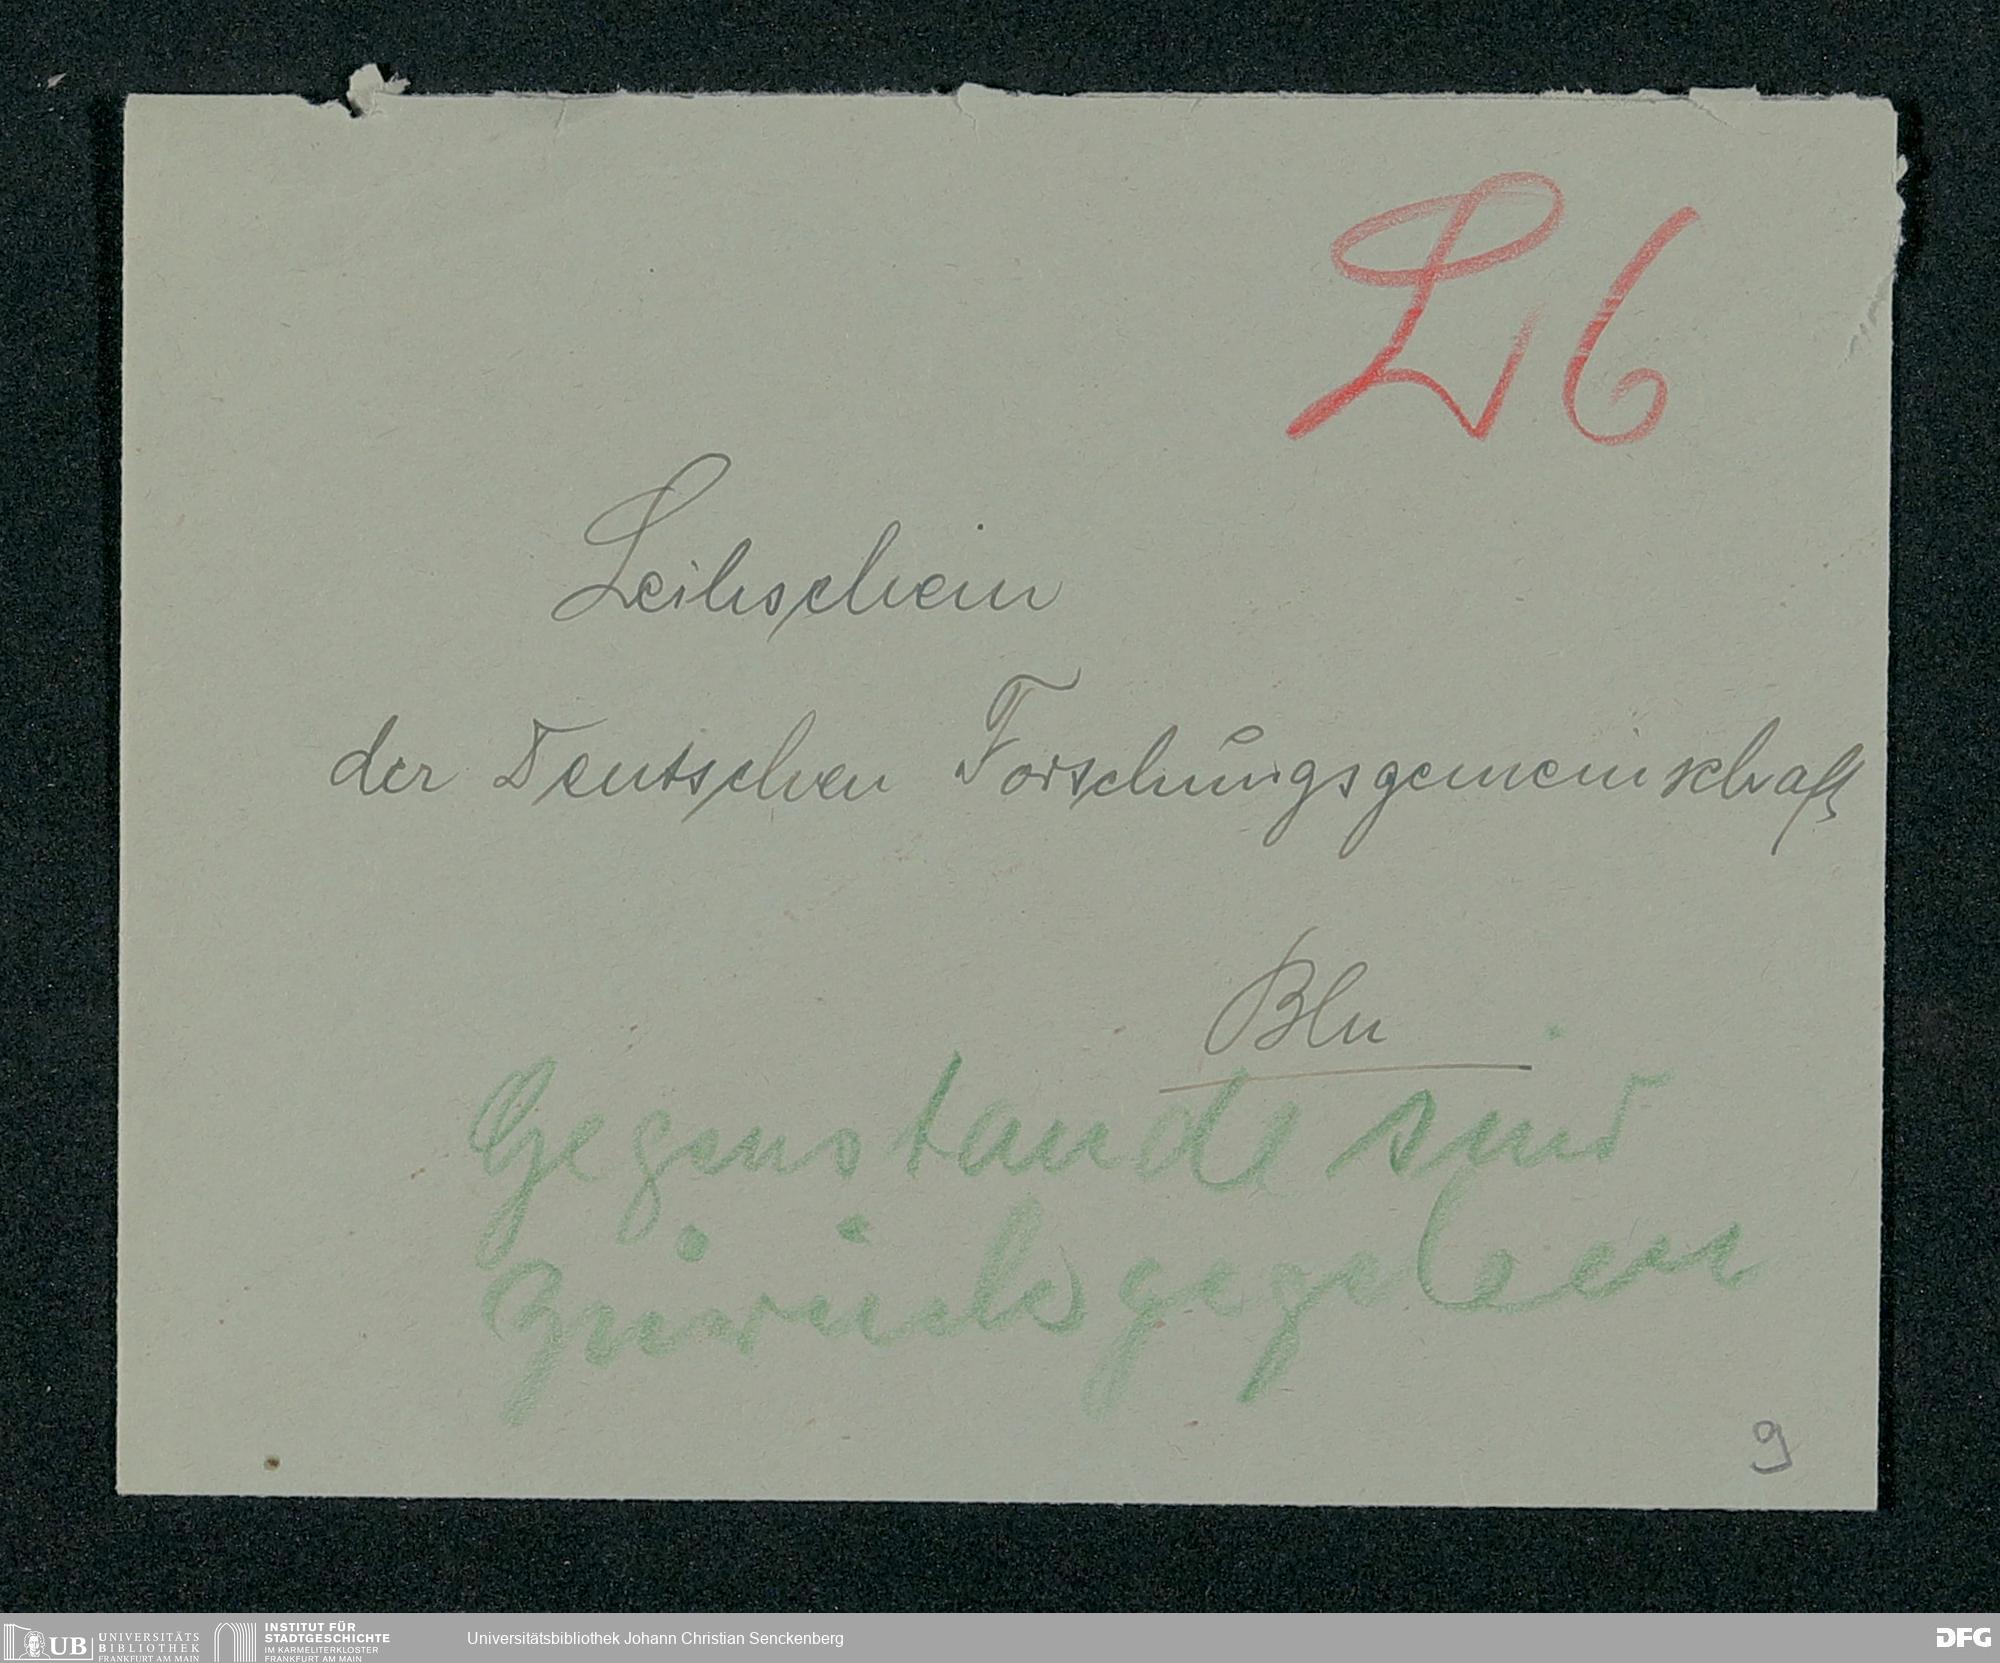 L 6
Leihschein
der Deutschen Forschungsgemeinschaft
Bln
Gegenstande sind
zurückgegeben
9
UB
UNIVERSITÄTS
BIBLIOTHEK
FRANKFURT AM MAIN
INSTITUT FÜR
STADTGESCHICHTE
IM KARMELITERKLOSTER
FRANKFURT AM MAIN
Universitätsbibliothek Johann Christian Senckenberg
DFG